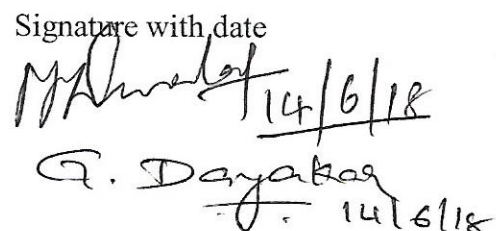 Signature with date
14/6/18
G. Dayakar
14/6/18